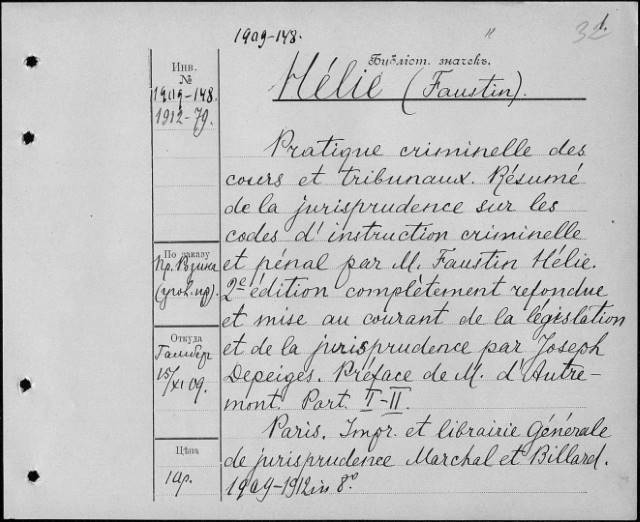 1909-148.
32
1.
Библіот. значекъ.
Инв.
№
1909-148.
1912-79.
Hélie (Faustin).
Pratique criminelle des
cours et tribunaux. Résumé
de la jurisprudence sur les
codes d'instruction criminelle
По заказу
et pénal par M. Faustin Hélie.
Пр. Розина
(угол. пр).
2e édition complètement refondue
et mise au courant de la législation
Откуда
et de la jurisprudence par Joseph
15/XI 09.
Depeiges. Préface de M. d'Autre-
mont. Part. I-II.
Paris. Impr. et librairie Générale
Цѣна
de jurisprudence Marchal et Billard.
1909-1912 in 8°